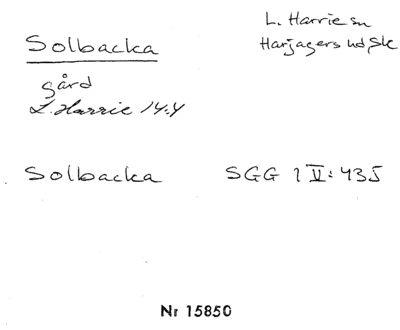 Solbacka
L. Harrie sn
Harjagers hd, Sk
gård
L. Harrie 14:4
Solbacka SGG 1 V: 435
Nr 15850